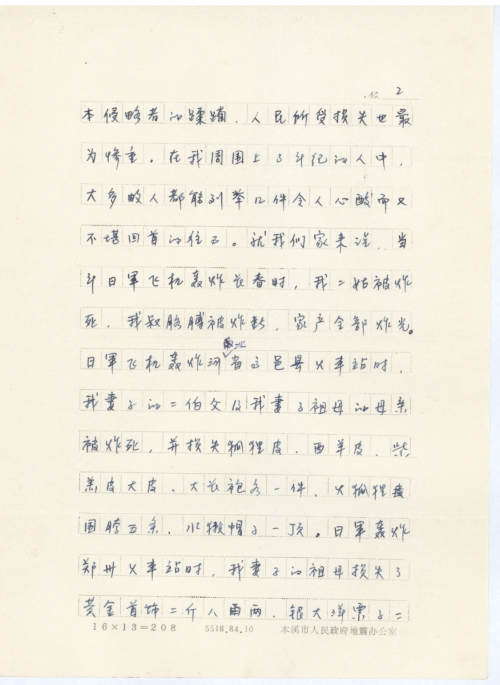 2
本侵略者的蹂躏，人民所受损失也最
为惨重。在我周围上了年纪的人中，
大多数人都能列举几件令人心酸而又
不堪回首的往事。就我们家来说，当
年日军飞机轰炸长春时，我二姑被炸
死，我叔胳膊被炸断，家产全部炸光。
日军飞机轰炸河南省邑县火车站时，
我妻子的二伯父及我妻子祖母的母亲
被炸死，并损失狐狸皮、西羊皮、
羔皮大皮、大长袍各一件，火狐狸
围脖五条，水獭帽子一顶。日军轰炸
郑州火车站时，我妻子的祖母损失了
黄金首饰二斤八两，银大洋票子二
16×13=208 5518.84.10 本溪市人民政府地震办公室